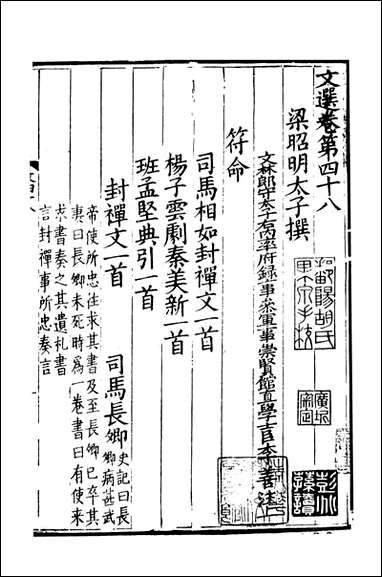 文選卷第四十八
梁昭明太子撰
文林郎守太子右內率府錄事參軍事崇賢館直學士臣李善注
符命
司馬相如封禪文一首
楊子雲劇秦美新一首
班孟堅典引一首
封禪文一首
司馬長卿
史記曰長卿病甚武
帝使所忠往求其書及至長卿已卒其
妻曰長卿未死時為一卷書曰有使來
求書奏之其遺札書
言封禪事所忠奏言
鄱陽胡氏